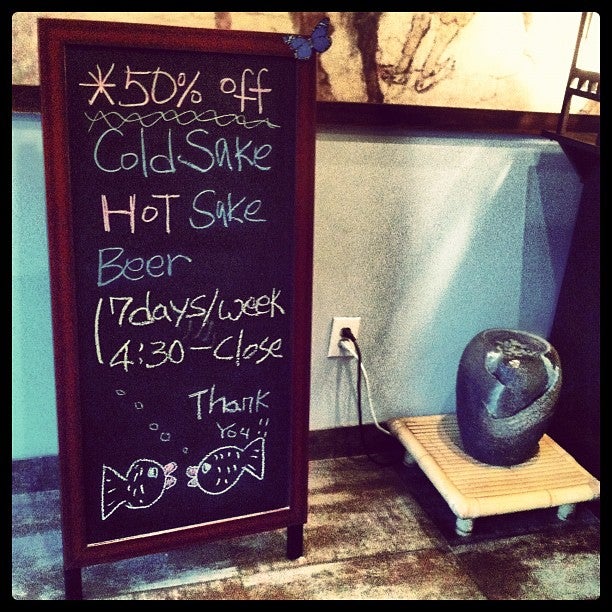 *50% off
Cold Sake
HOT Sake
Beer
7days/week
4:30-Close
Thank
You!!